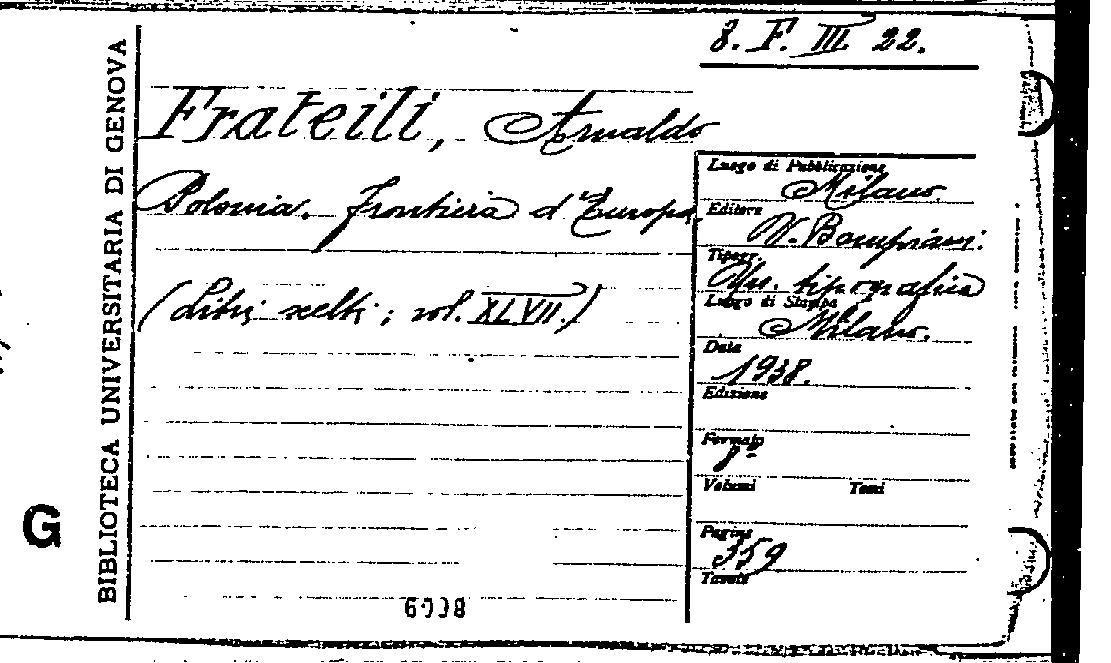 8. F. III. 22.
BIBLIOTECA UNIVERSITARIA DI GENOVA
G
Frateili, Arnaldo
Polonia. frontiera d'Europa.
(Libri scelti; vol. XLVII.)
Luogo di Pubblicazione
Milano.
Editore
V. Bompiani.
Tipogr.
tipografica
Luogo di Stampa
Milano.
Data
1938.
Edizione
Formato
8°
Volumi Tomi
Pagine
359
Tavole